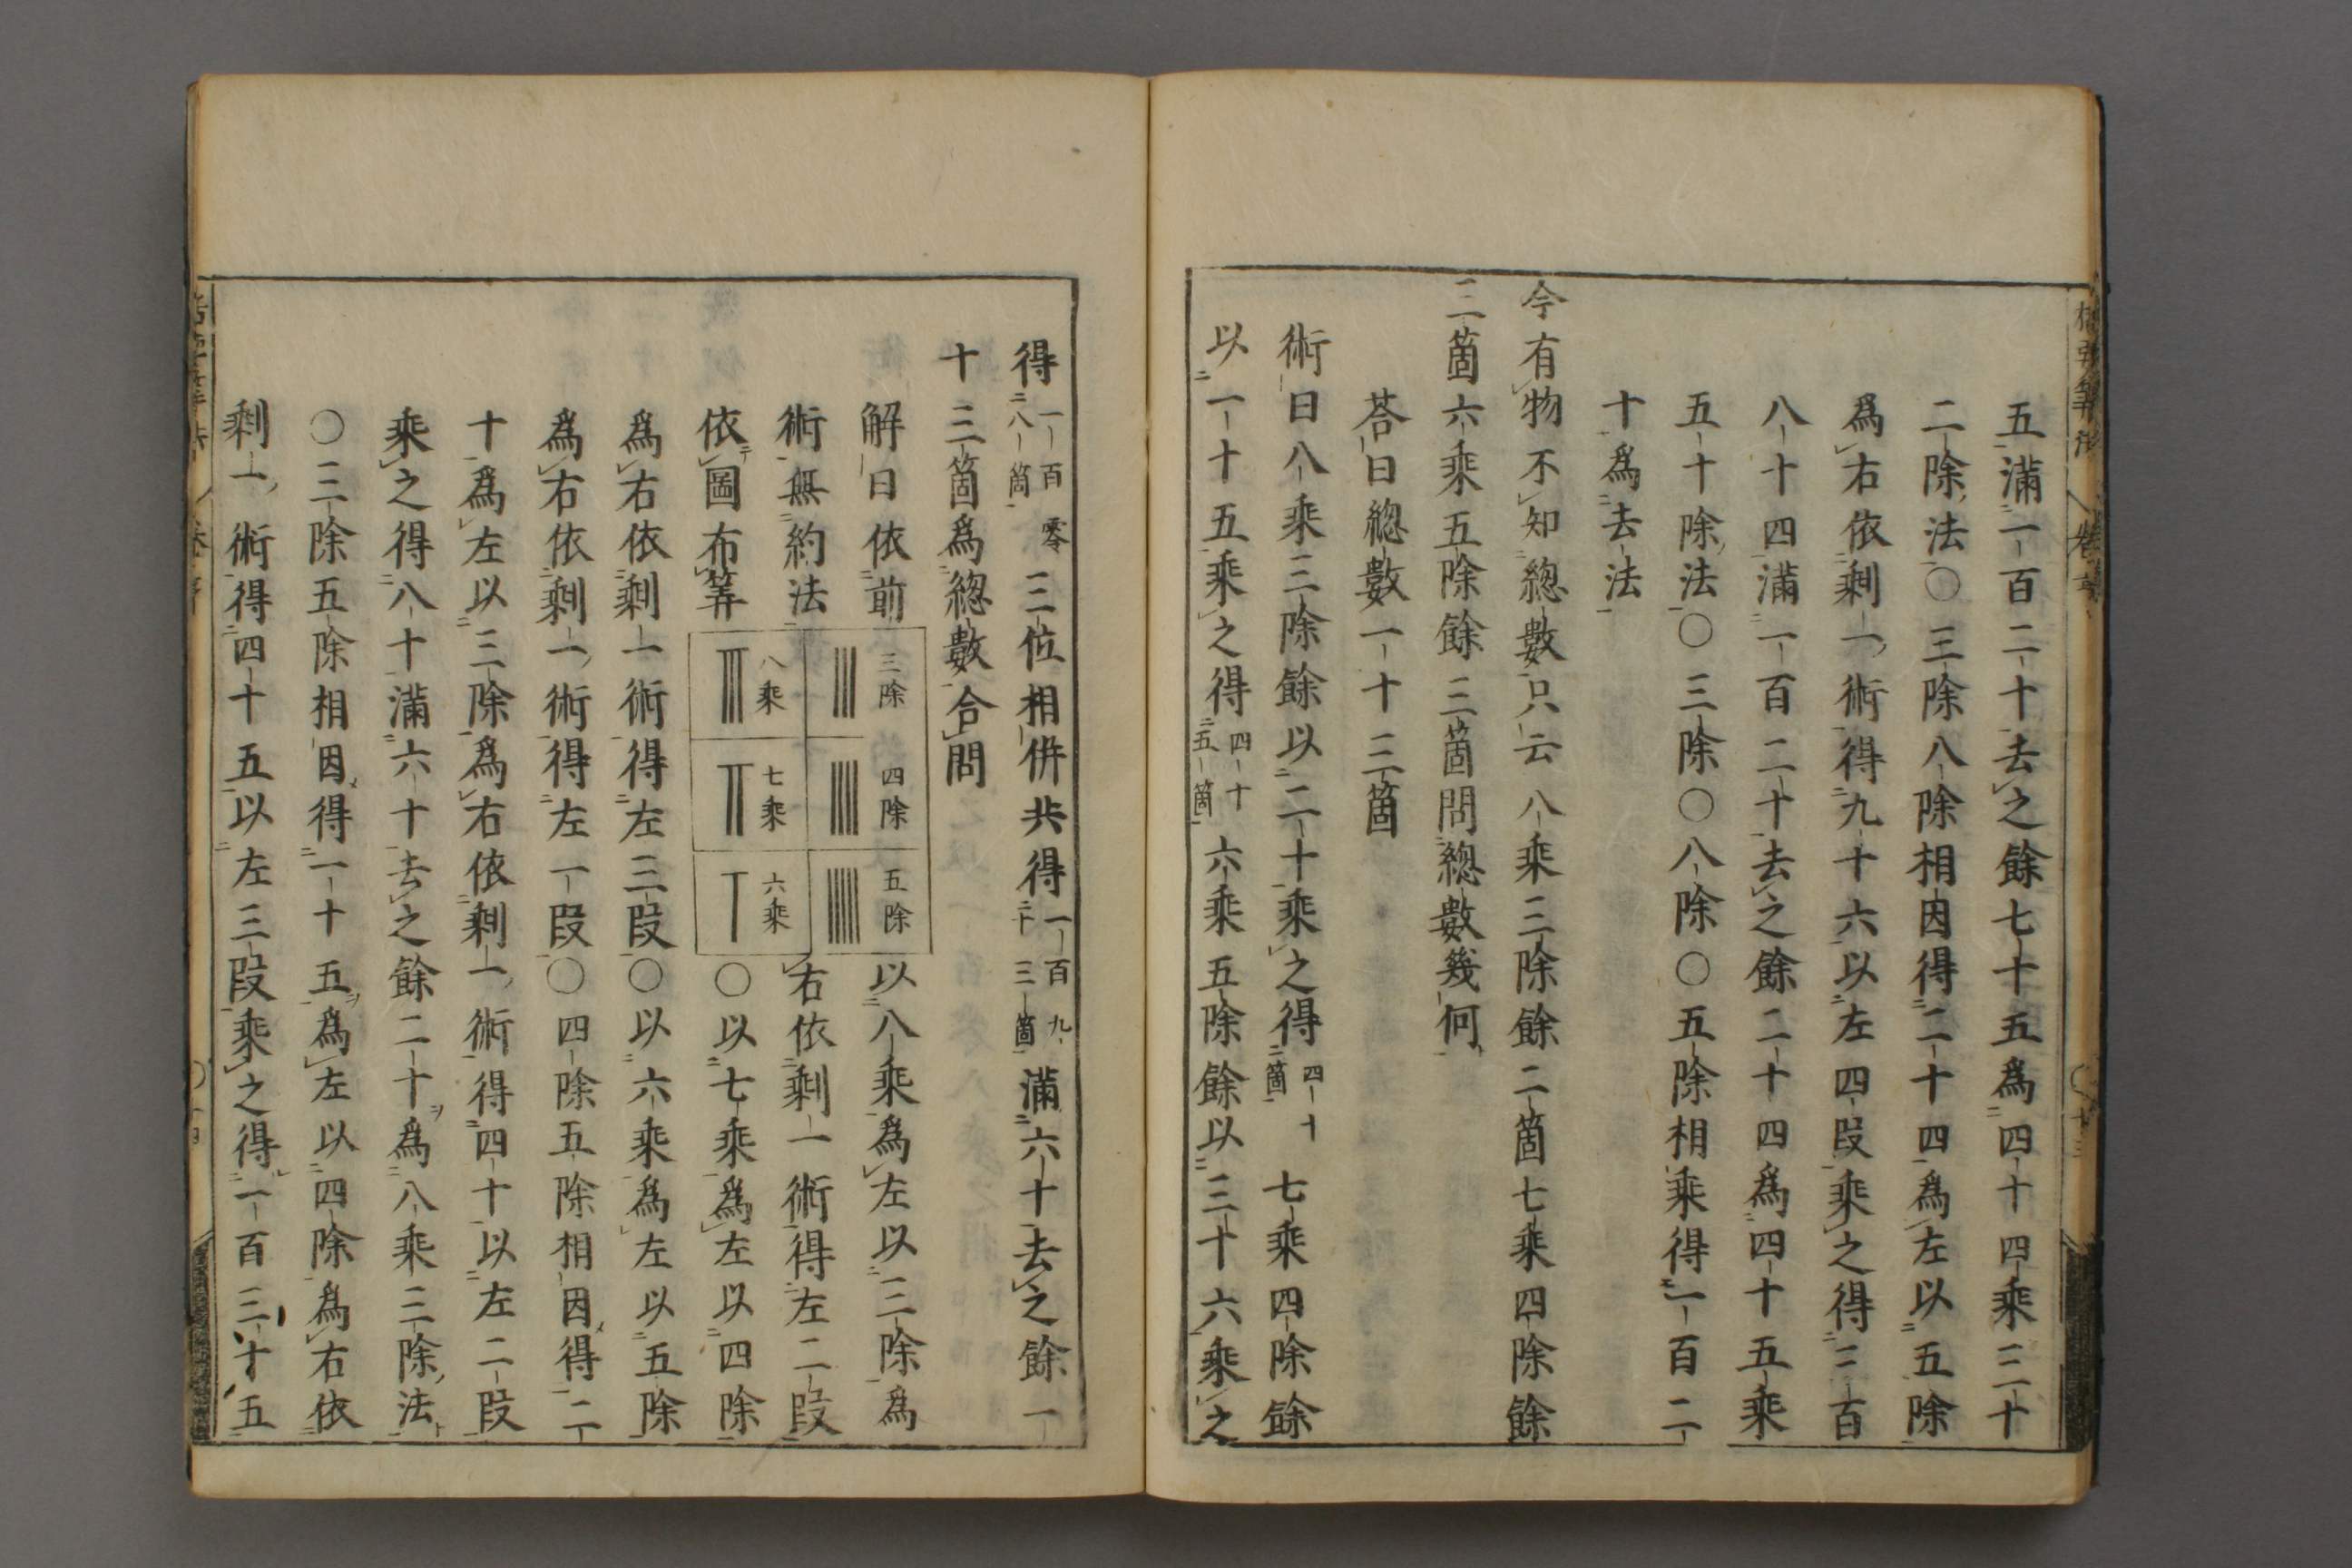 五滿一百二十去之餘七十五爲四十四乘三十
二除法〇三除八除相因得二十四爲左以五除
爲右依剩一術得九十六以左四段乘之得三百
八十四滿一百二十去之餘二十四爲四十五乘
五十除法〇三除〇八除〇五除相乘得一百二
十爲去法
今有物不知總數只云八乘三除餘二箇七乘四除餘
三箇六乘五除餘三箇問總數幾何
荅曰總數一十三箇
術曰八乘三除餘以二十乘之得四十二箇七乘四除餘
以一十五乘之得四十五箇六乘五除餘以三十六乘之
得一百零八箇三位相併共得一百九十三箇滿六十去之餘一
十三箇爲總數合問
解曰依前 以八乘爲左以三除爲
術無約法 右依剩一術得左二段
依圖布筭 〇以七乘爲左以四除
三除 四除 五除
八乘 七乘 六乘
爲右依剩一術得左三段〇以六乘爲左以五除
爲右依剩一術得左一段〇四除五除相因得二
十爲左以三除爲右依剩一術得四十以左二段
乘之得八十滿六十去之餘二十爲八乘三除法
〇三除五除相因得一十五爲左以四除爲右依
剩一術得四十五以左三段乘之得一百三十五